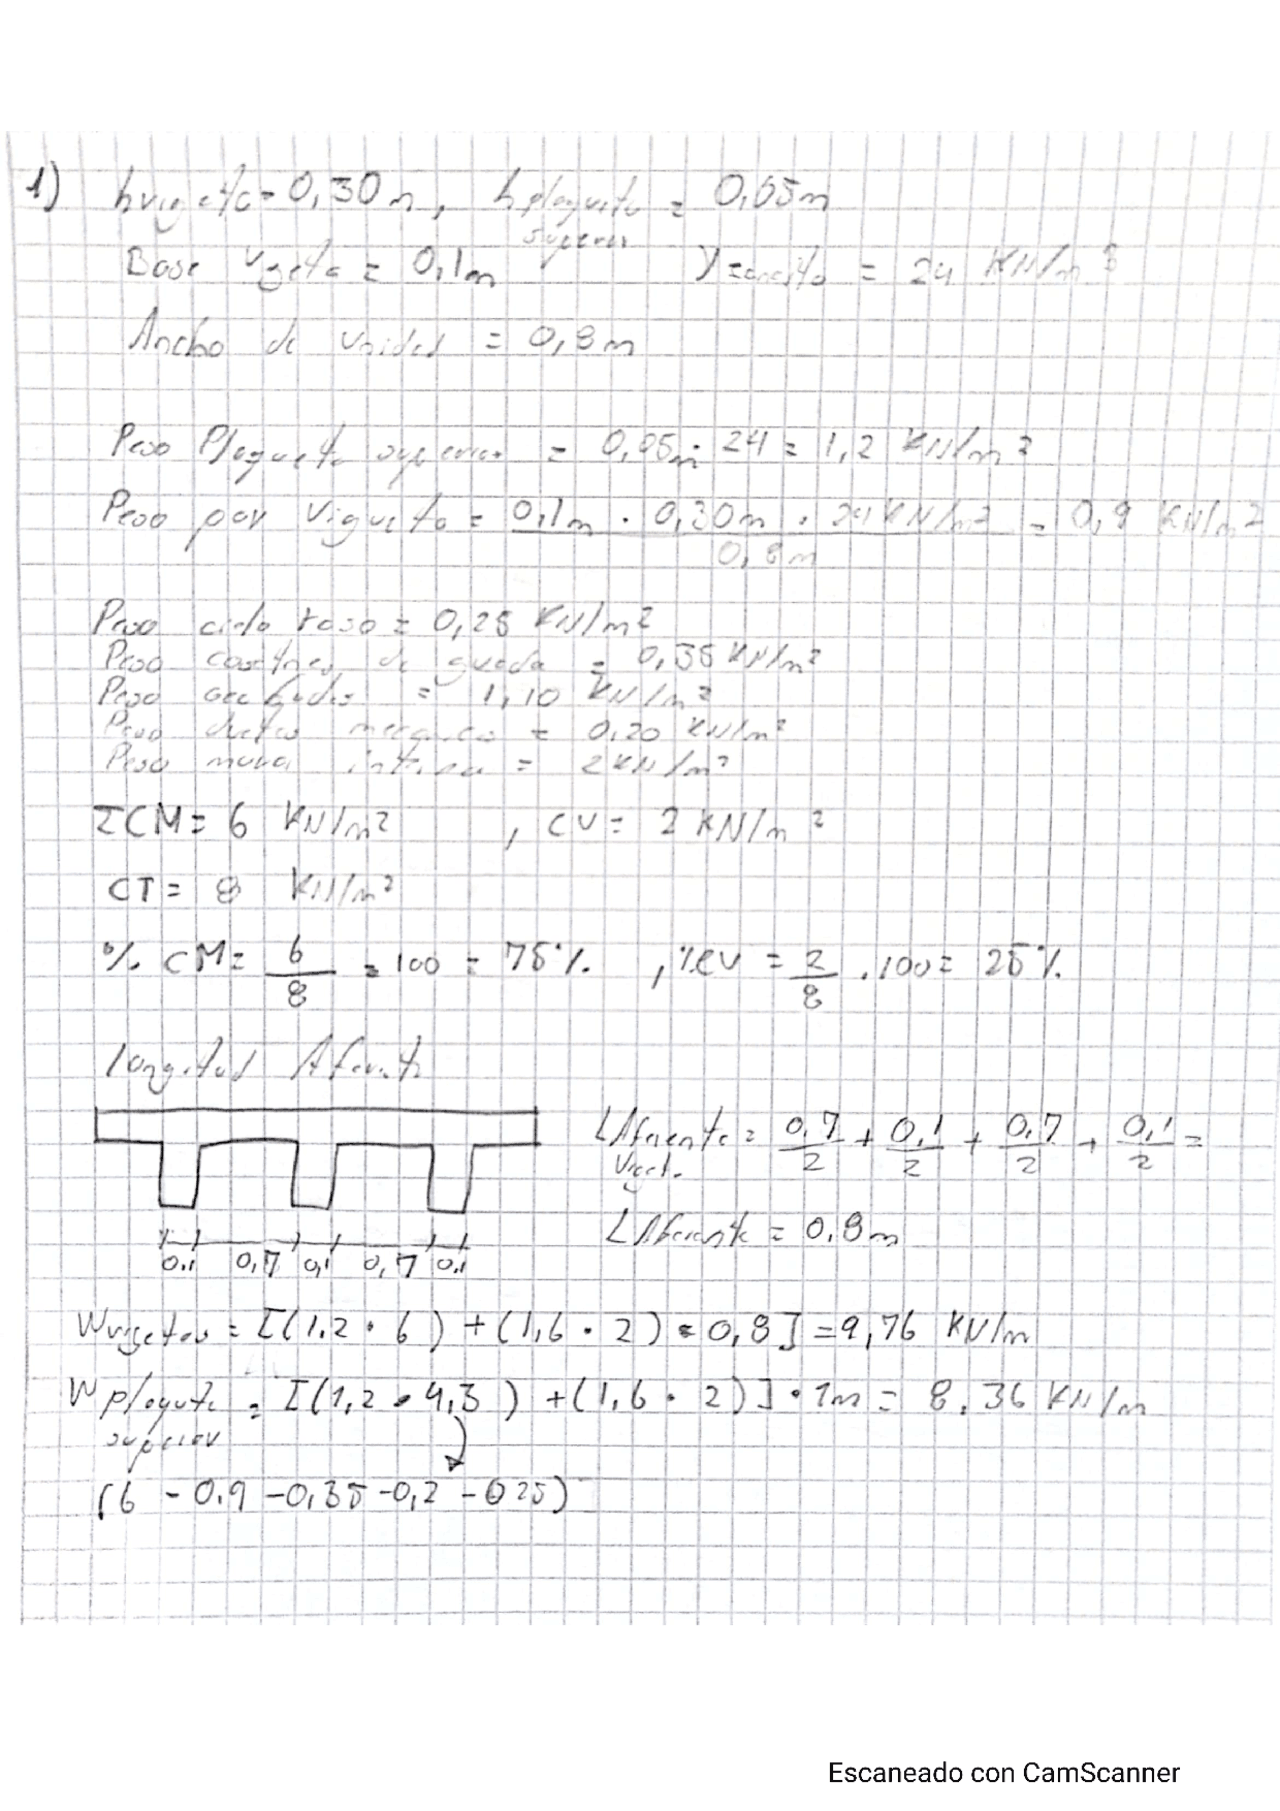 1) hvigueta = 0,30m, hplaqueta superior = 0,05m
Base vigeta = 0,1m γconcreto = 24 KN/m3
Ancho de unidad = 0,8m
Peso Plaqueta superior = 0,05m · 24 = 1,2 KN/m2
Peso por vigueta = 0,1m · 0,30m · 24 KN/m3 / 0,8m = 0,9 KN/m2
Peso cielo raso = 0,25 KN/m2
Peso casetones de guadua = 0,35 KN/m2
Peso acabados = 1,10 KN/m2
Peso ductos mecanicos = 0,20 KN/m2
Peso = 2 KN/m2
ΣCM = 6 KN/m2 , CV = 2 KN/m2
CT = 8 KN/m2
% CM = 6/8 · 100 = 75% , %CV = 2/8 · 100 = 25%
Longitud Aferente
LAferente viget. = 0,7/2 + 0,1/2 + 0,7/2 + 0,1/2 =
LAferente = 0,8m
0.1 0,7 0,1 0,7 0.1
Wvigetas = [(1,2 · 6) + (1,6 · 2) · 0,8] = 9,76 KN/m
W plaqueta superior = [(1,2 · 4,3) + (1,6 · 2)] · 1m = 8,36 KN/m
(6 - 0,9 - 0,35 - 0,2 - 0 25)
Escaneado con CamScanner